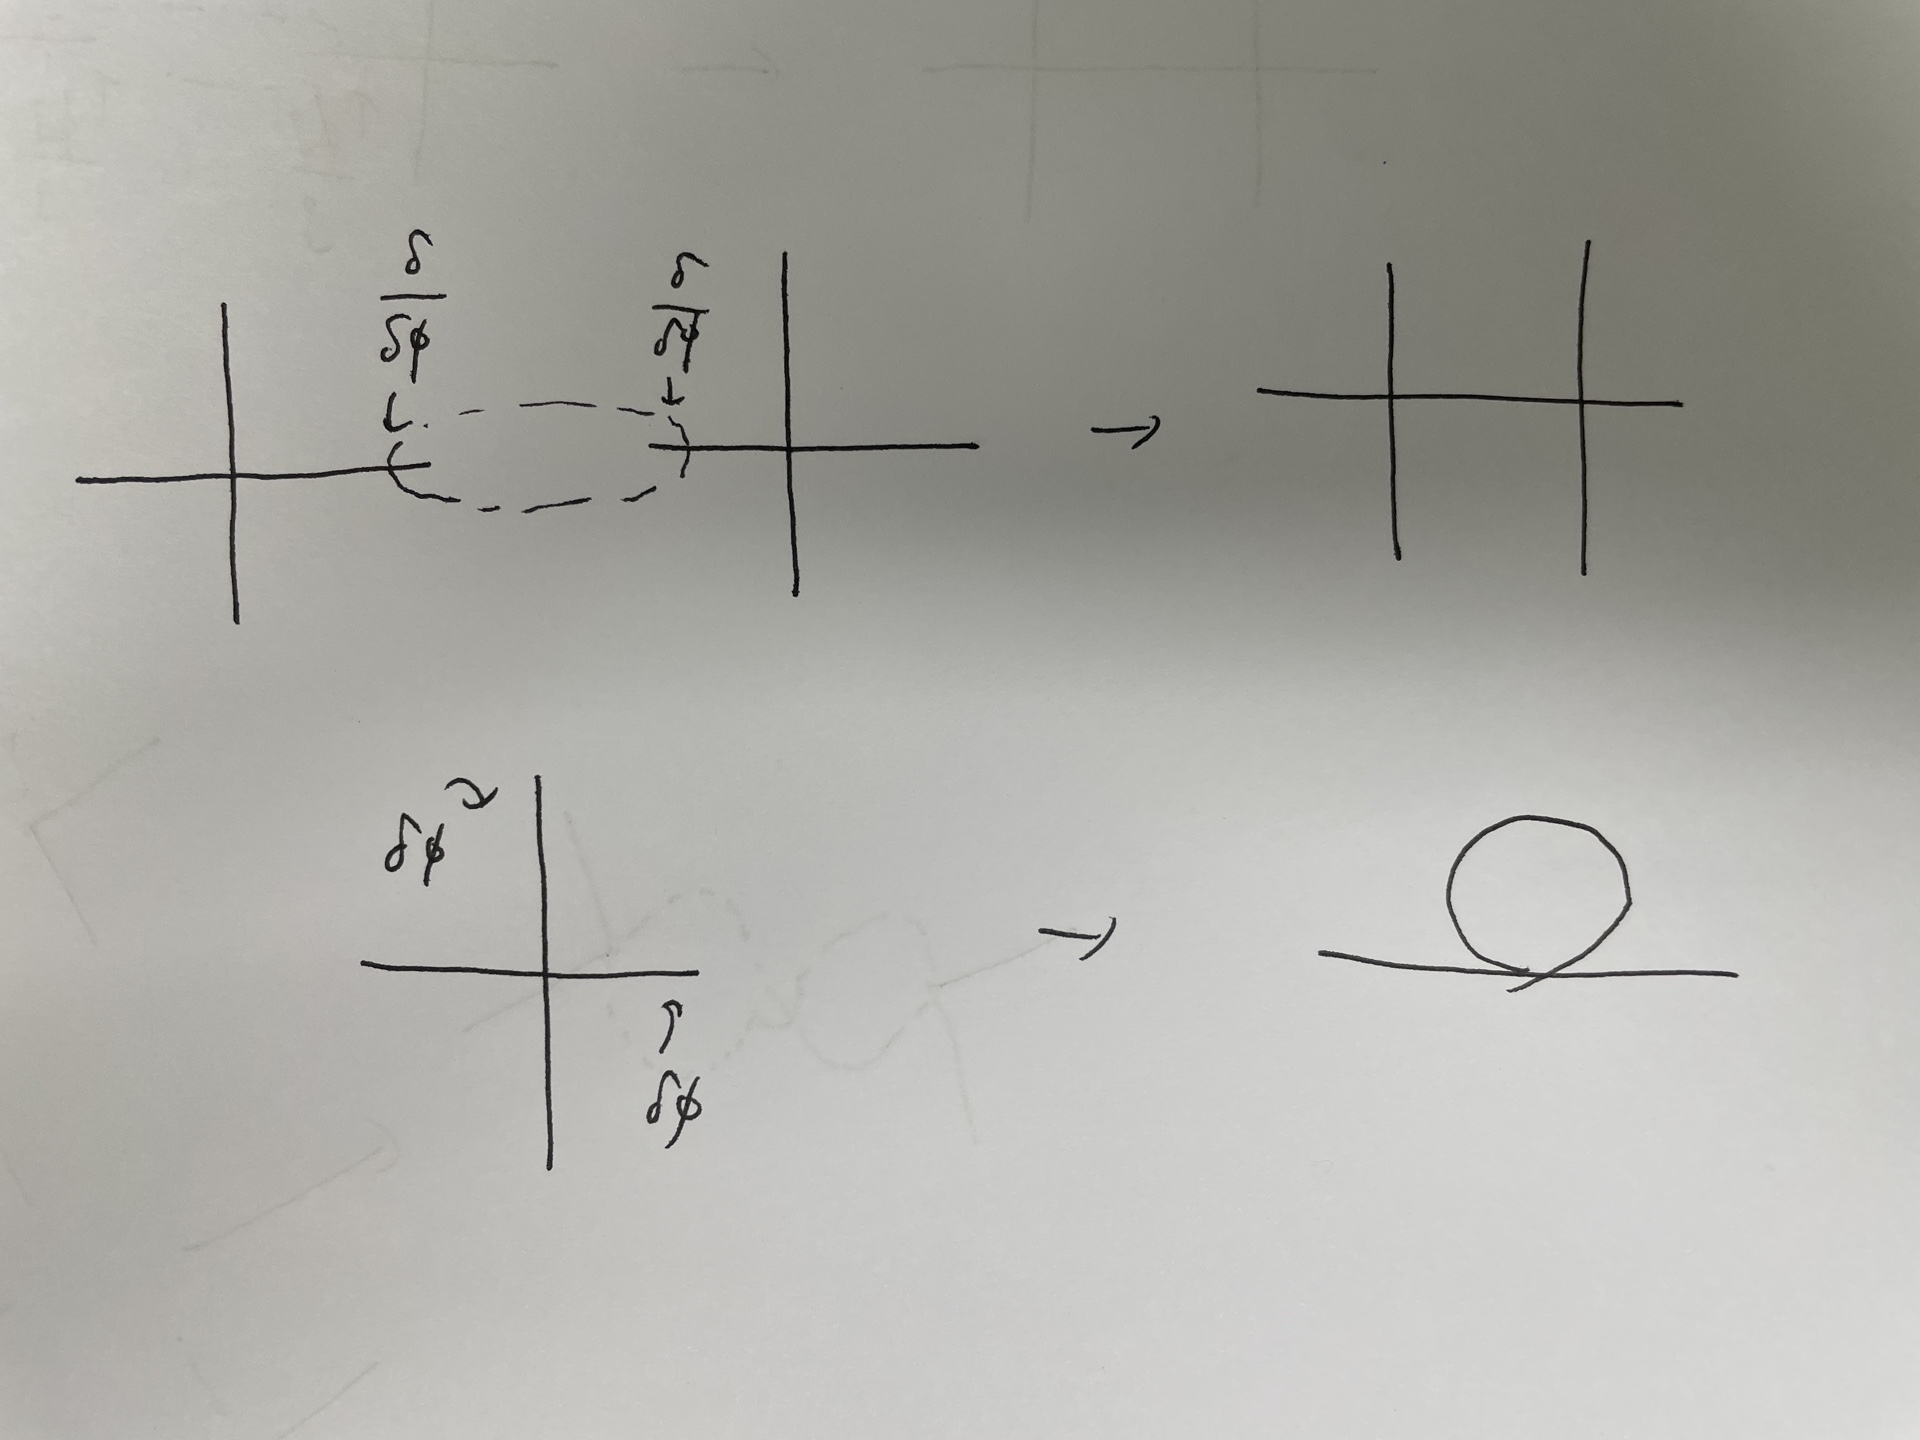 δ/δϕ δ/δϕ
→
δϕ
→
δϕ